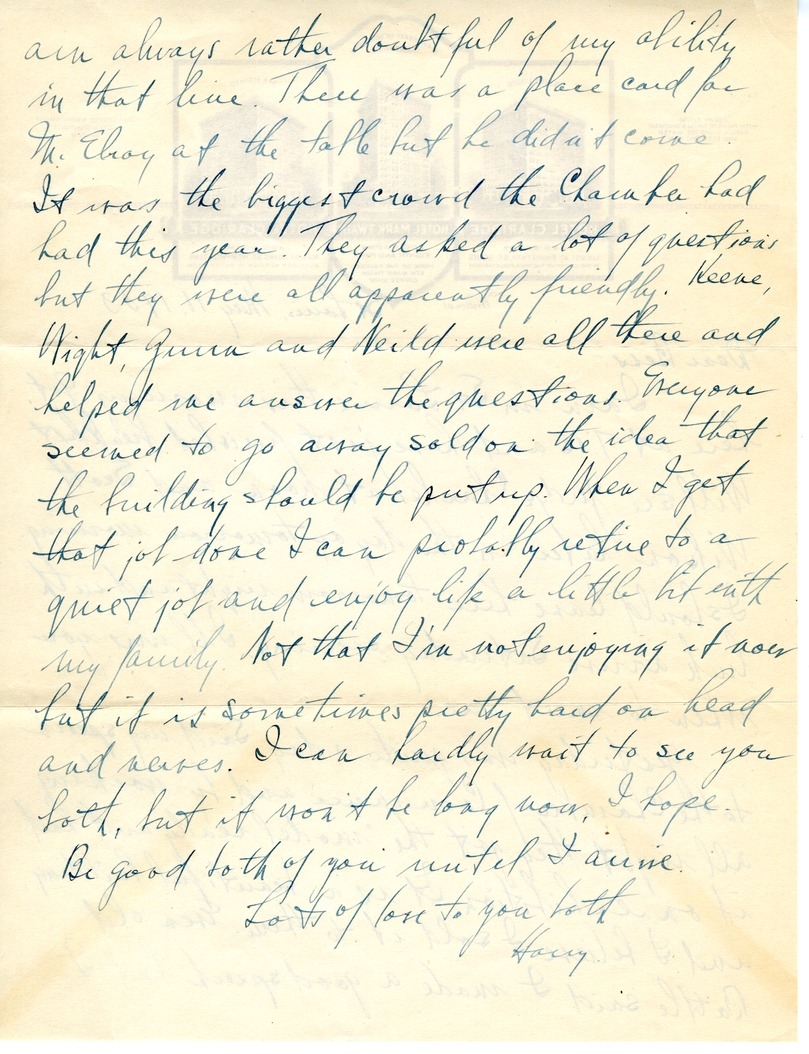 am always rather doubtful of my ability
in that line. There was a place card for
Mc Elroy at the table but he didn't come.
It was the biggest crowd the Chamber had
had this year. They asked a lot of questions
but they were all apparently friendly. Keene,
Wight, Gunn and Neild were all there and
helped me answer the questions. Everyone
seemed to go away sold on the idea that
the building should be put up. When I get
that job done I can probably retire to a
quiet job and enjoy life a little bit with
my family. Not that I'm not enjoying it now
but it is sometimes pretty hard on head
and nerves. I can hardly wait to see you
both, but it won't be long now, I hope.
Be good both of you until I arrive.
Lots of love to you both
Harry.